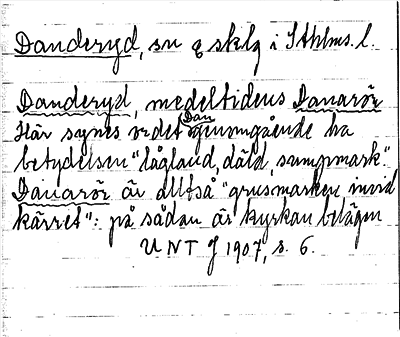 Danderyd, sn o sklg i Sthlms. l.
Danderyd, medeltidens Danarör
Här synes ordet Dan genomgående ha
betydelsen "lågland, däld, sumpmark".
Danarör är alltså "grusmarken invid
kärret": på sådan är kyrkan belägen
UNT J 1907, s. 6.